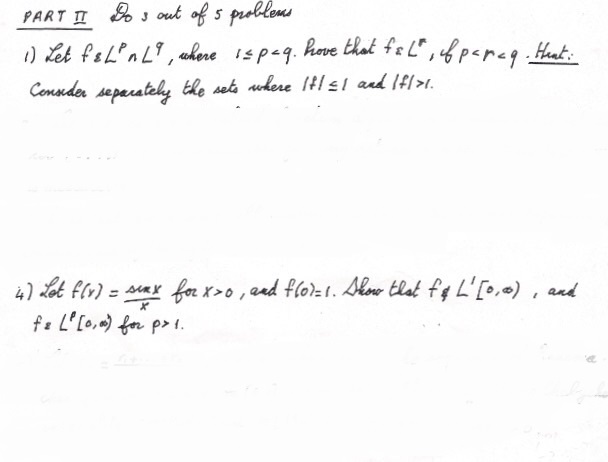 PART II Do 3 out of 5 problems
1) Let f ε L^p ∩ L^q, where 1 ≤ p < q. Prove that f ε L^r, if p < r < q. Hint:
Consider separately the sets where |f| ≤ 1 and |f| > 1.
4) Let f(x) = sin x / x for x > 0, and f(0) = 1. Show that f ∉ L^1[0,∞), and
f ε L^p[0,∞) for p > 1.